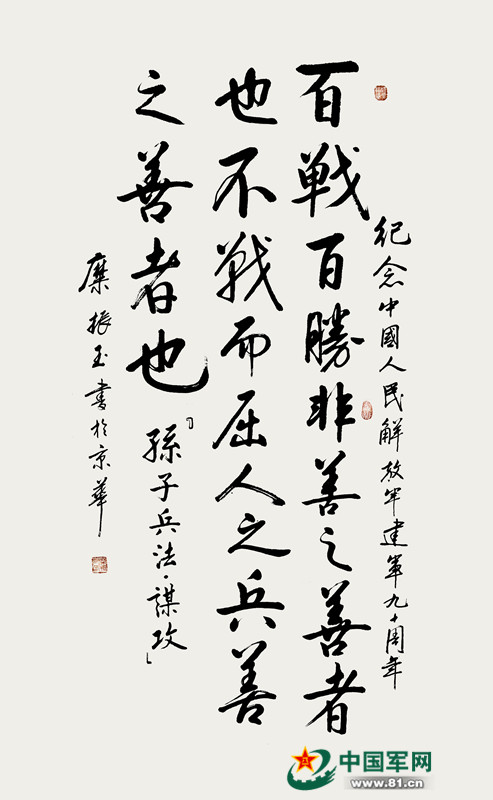 纪念中國人民解放军建军九十周年
百戰百勝非善之善者
也不戰而屈人之兵善
之善者也
「孫子兵法·謀攻」
糜振玉書於京華
中国军网
www.81.cn